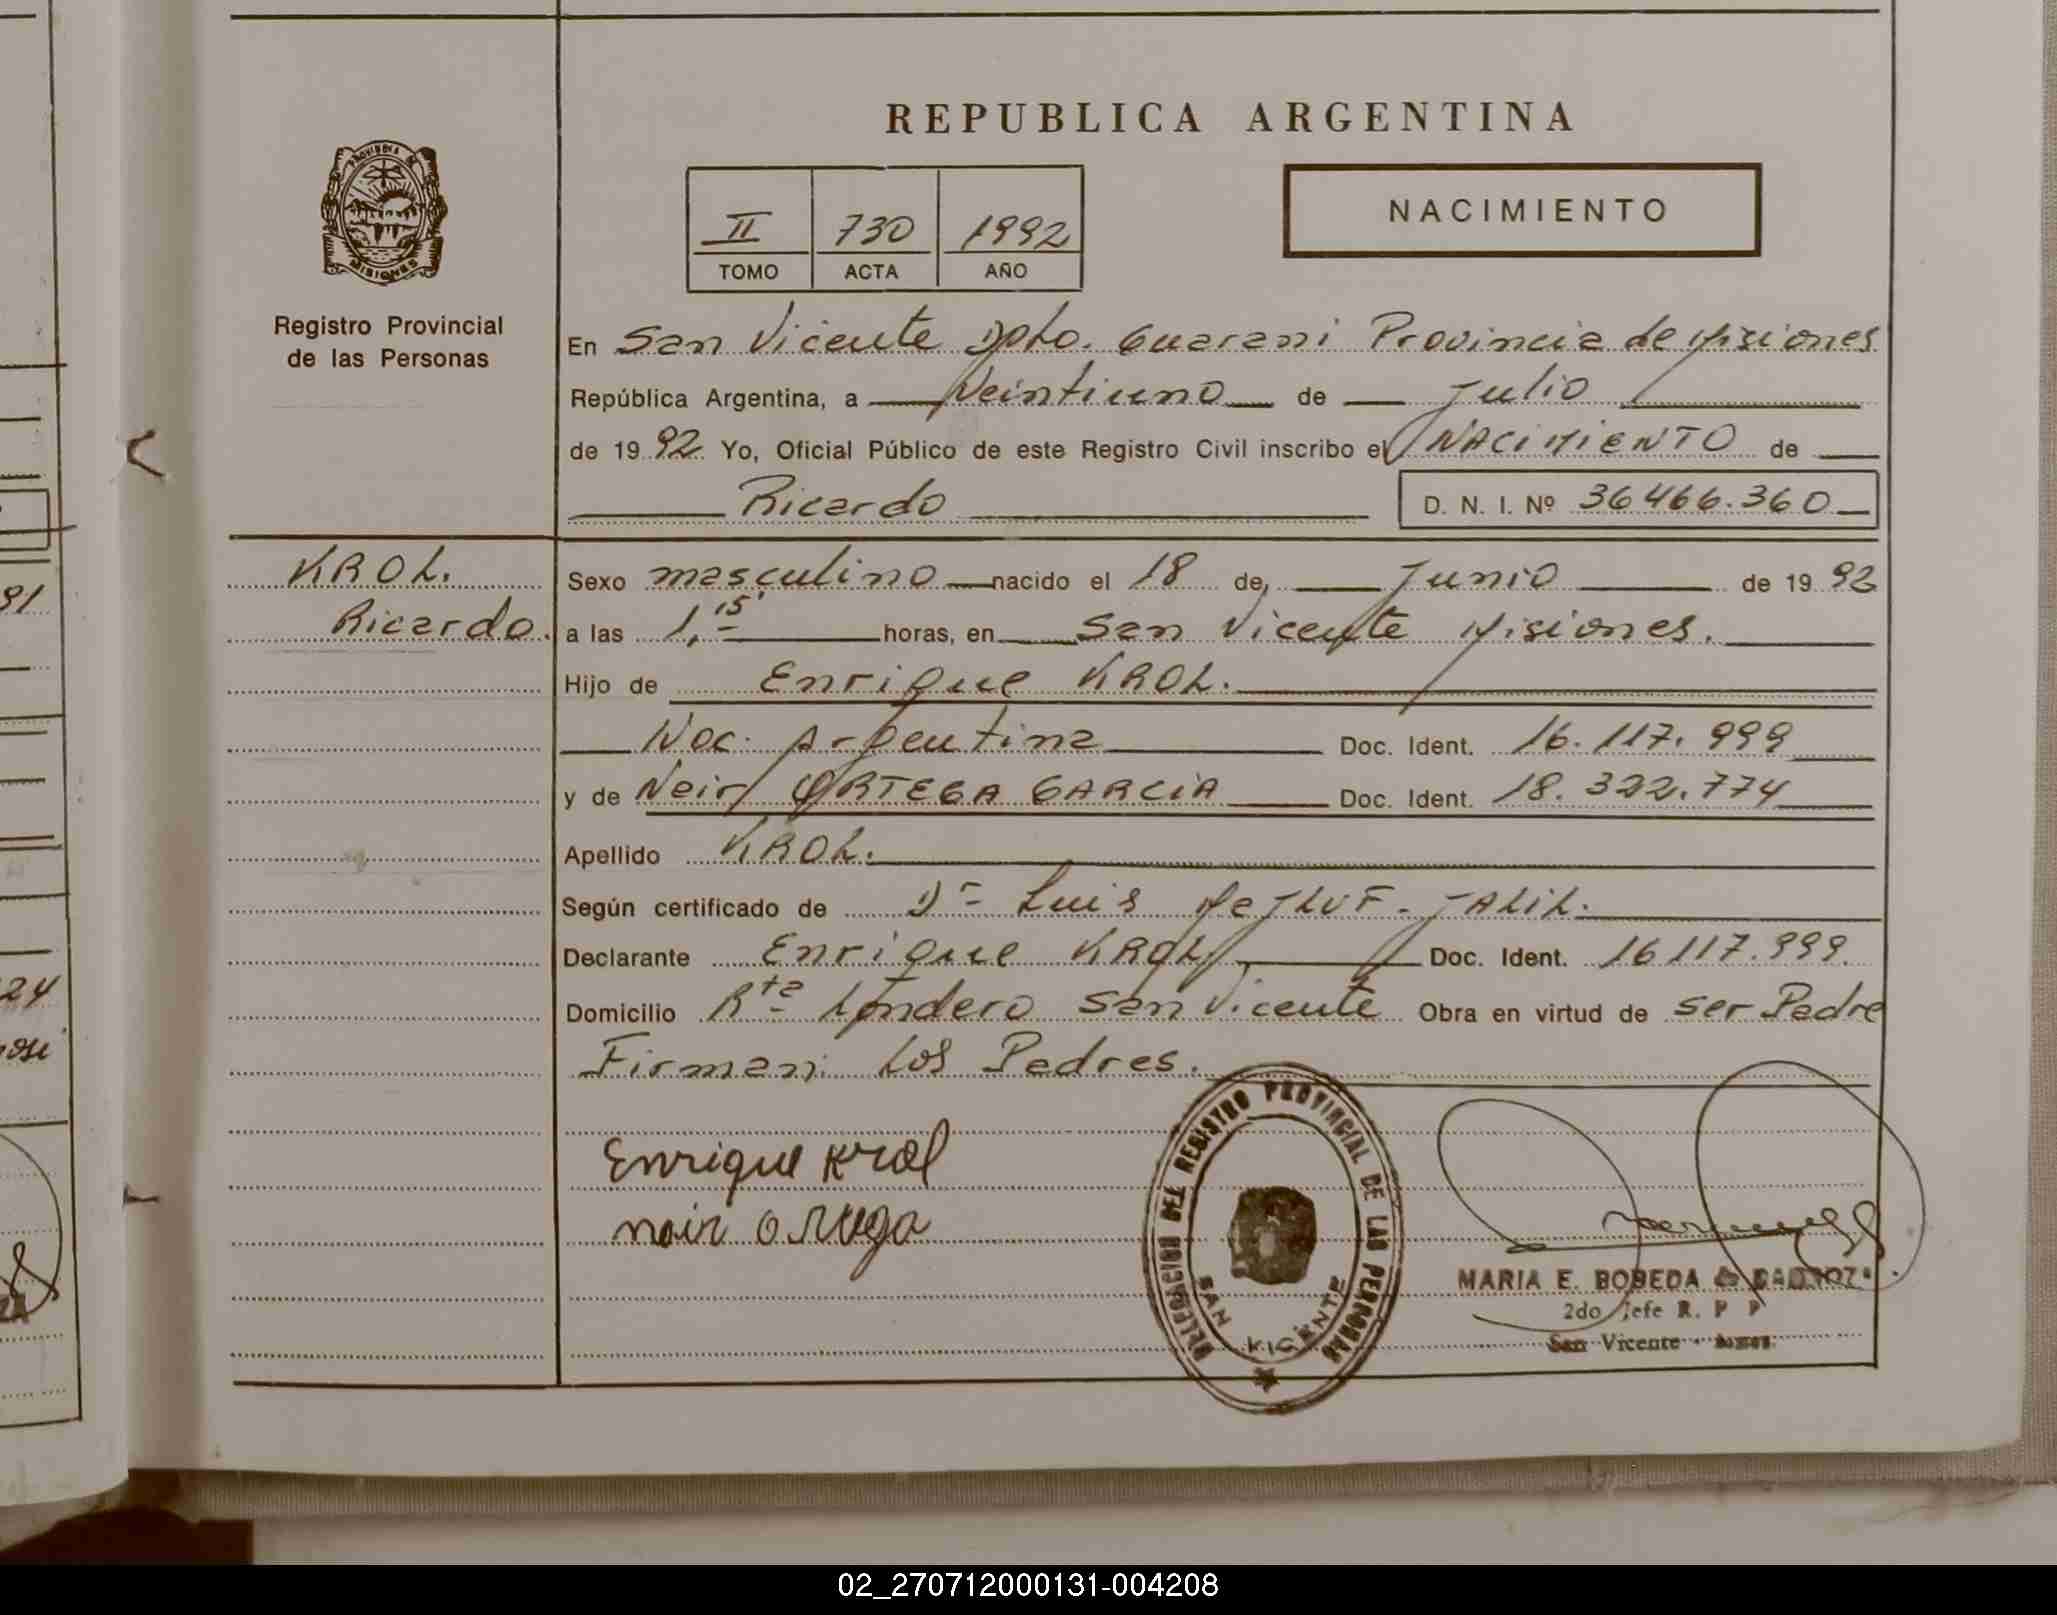 REPUBLICA ARGENTINA
PROVINCIA DE
MISIONES
Registro Provincial
de las Personas
II 730 1992
TOMO ACTA AÑO
NACIMIENTO
En San Vicente Dpto. Guarani Provincia de Misiones
República Argentina, a Veintiuno de Julio
de 1992 Yo, Oficial Público de este Registro Civil inscribo el NACIMIENTO de
Ricardo D. N. I. Nº 36466.360
KROL.
Ricardo.
Sexo masculino nacido el 18 de Junio de 1992
a las 1,15' horas, en San Vicente Misiones.
Hijo de Enrique KROL.
Nac. Argentina Doc. Ident. 16.117.999
y de Neir ORTEGA GARCIA Doc. Ident. 18.322.774
Apellido KROL.
Según certificado de Dr Luis JALIL.
Declarante Enrique KROL Doc. Ident. 16117.999.
Domicilio Rta Londero San Vicente Obra en virtud de ser Padre
Firman: Los Padres.
Enrique Krol
nair
DELEGACION DEL REGISTRO PROVINCIAL DE LAS PERSONAS
SAN VICENTE
MARIA E. BOBEDA de
2do Jefe R. P P
San Vicente
91
24
02_270712000131-004208